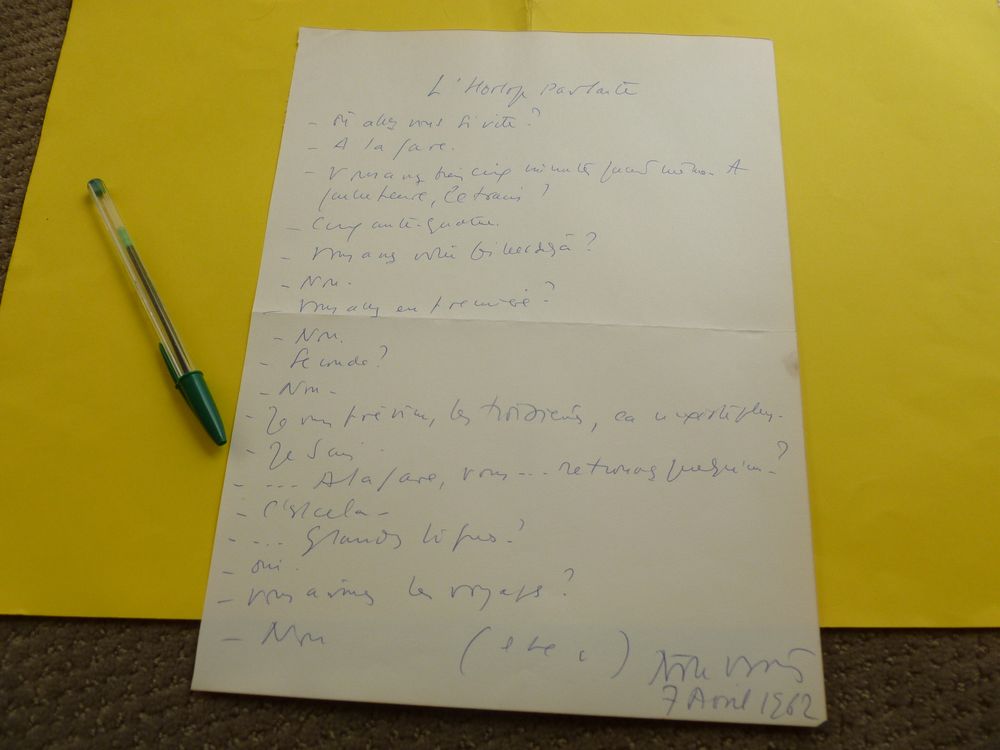 L'Horloge Parlante
- Où allez vous si vite ?
- A la gare.
- Vous avez cinq minutes quand même. A
quelle heure, le train ?
- Cinquante-quatre.
- Vous avez votre billet déjà ?
- Non.
- Vous allez en première ?
- Non.
- Seconde ?
- Non -
- Je vous préviens, les troisièmes, ça n'existe plus -
- Je sais -
- ... A la gare, vous ... retrouvez quelqu'un - ?
- C'est cela -
- ... Grandes lignes ?
- oui .
- Vous aimez les voyages ?
- Non (etc.)
7 Avril 1962